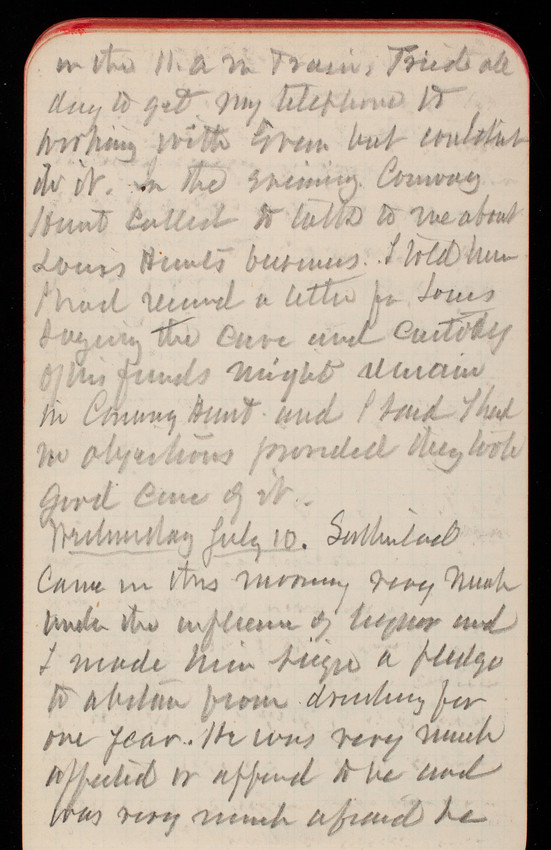 in the 11 a m Train. Tried all
day to get my telephone to
working with Green but couldnt
do it. In the evening Conway
Hunt called to talk to me about
Louis Hunts business. I told him
I had recived a letter fr Louis
saying the care and custody
of his funds might remain
in Conway Hunt and I said I had
no objections provided they took
good care of it.
Wednesday July 10. Sutherland
came in this morning very much
under the influence of liquor and
I made him sign a pledge
to abstain from drinking for
one year. He was very much
affected or appeard to be and
was very much afraid he